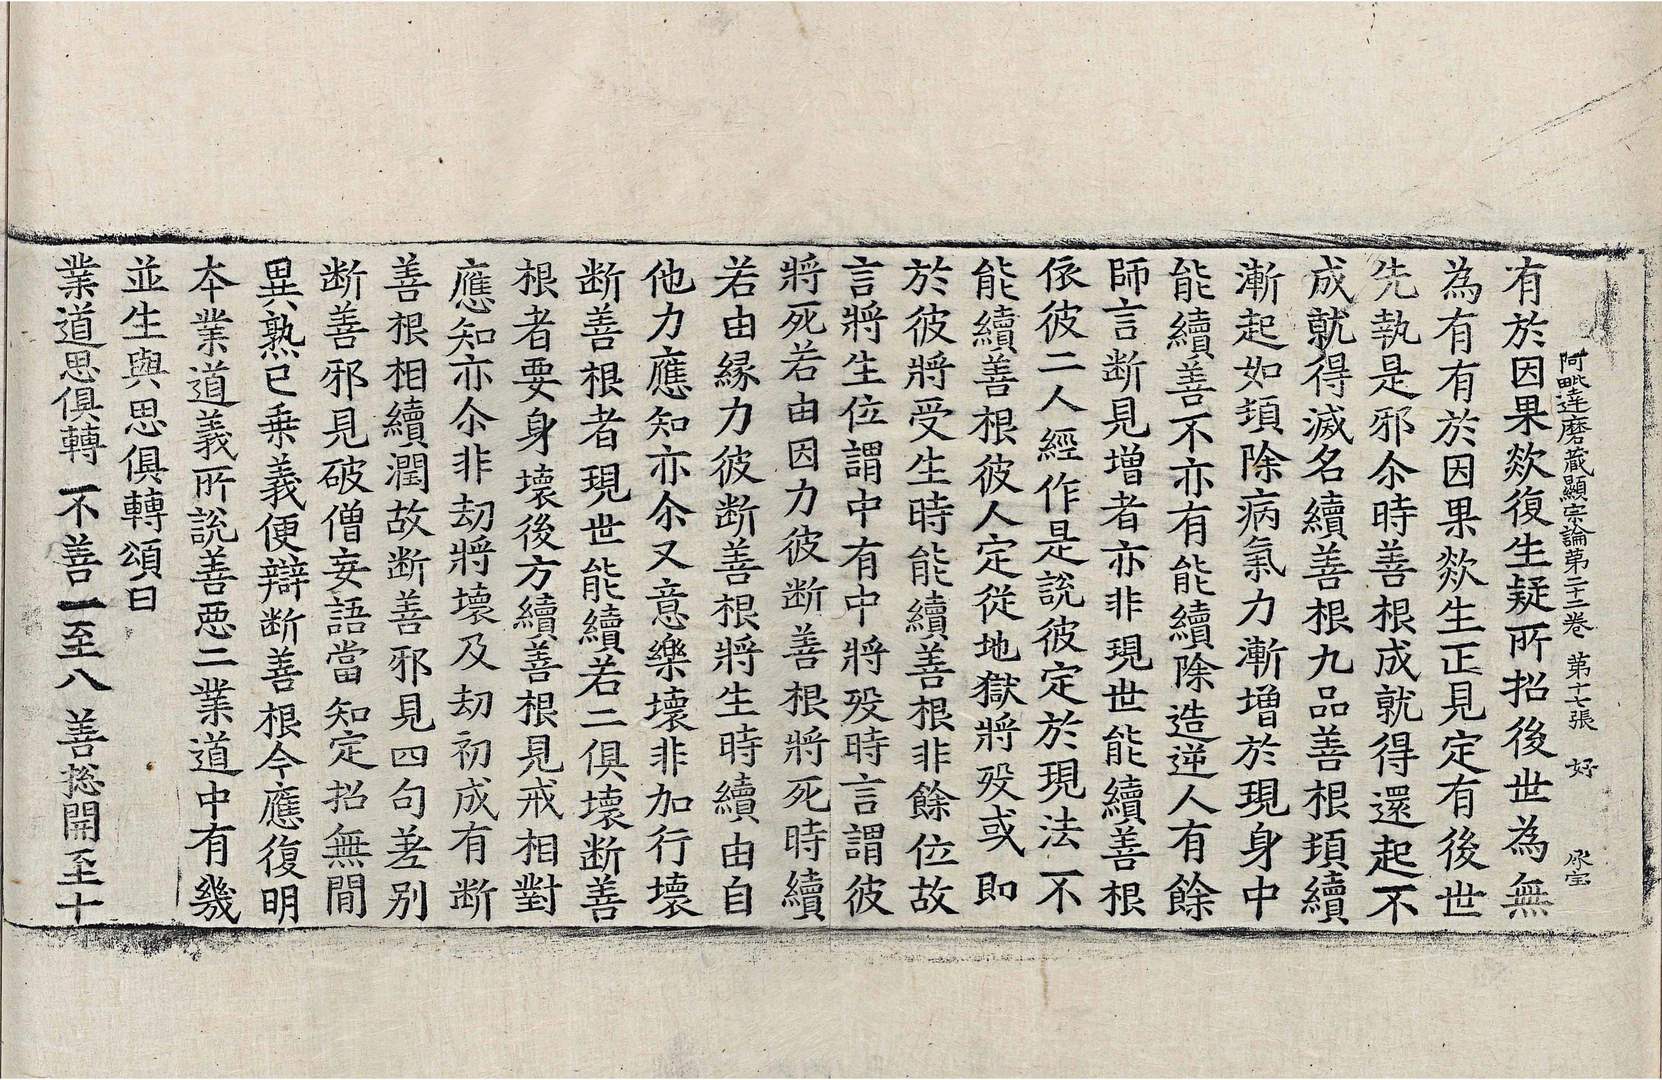 阿毗達磨藏顯宗論第二十二卷 第十七張 好 承宝
有於因果欻復生疑所招後世為無
為有有於因果欻生正見定有後世
先執是邪尒時善根成就得還起不
成就得滅名續善根九品善根頓續
漸起如頓除病氣力漸增於現身中
能續善不亦有能續除造逆人有餘
師言断見增者亦非現世能續善根
依彼二人經作是說彼定於現法不
能續善根彼人定從地獄將歿或即
於彼將受生時能續善根非餘位故
言將生位謂中有中將歿時言謂彼
將死若由因力彼断善根將死時續
若由緣力彼断善根將生時續由自
他力應知亦尒又意樂壞非加行壞
断善根者現世能續若二俱壞断善
根者要身壞後方續善根見戒相對
應知亦尒非劫將壞及劫初成有断
善根相續潤故断善邪見四句差別
断善邪見破僧妄語當知定招無間
異熟已乗義便辯断善根今應復明
本業道義所說善惡二業道中有幾
並生與思俱轉頌曰
業道思俱轉 不善一至八 善揔開至十